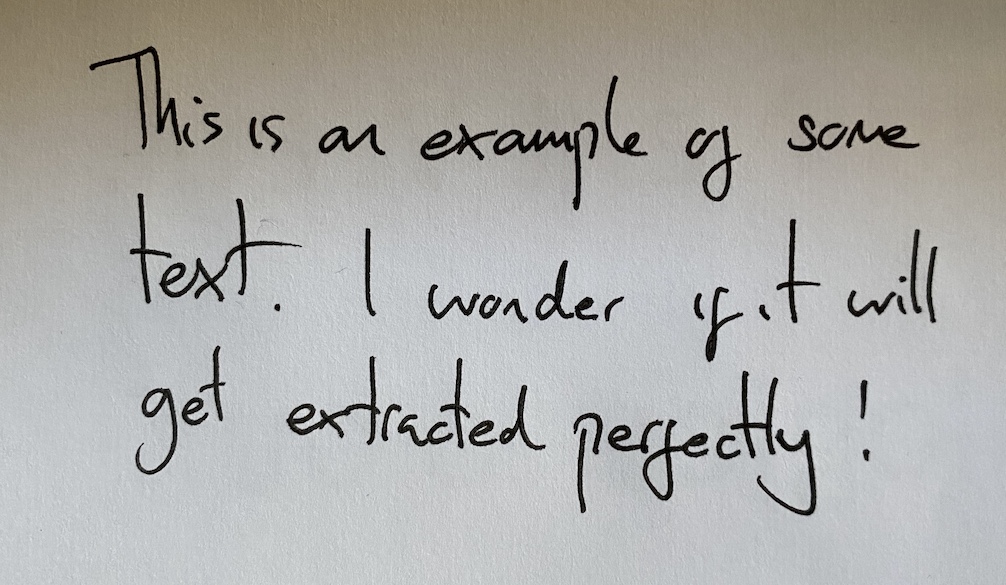 This is an example of some
text. I wonder if it will
get extracted perfectly!